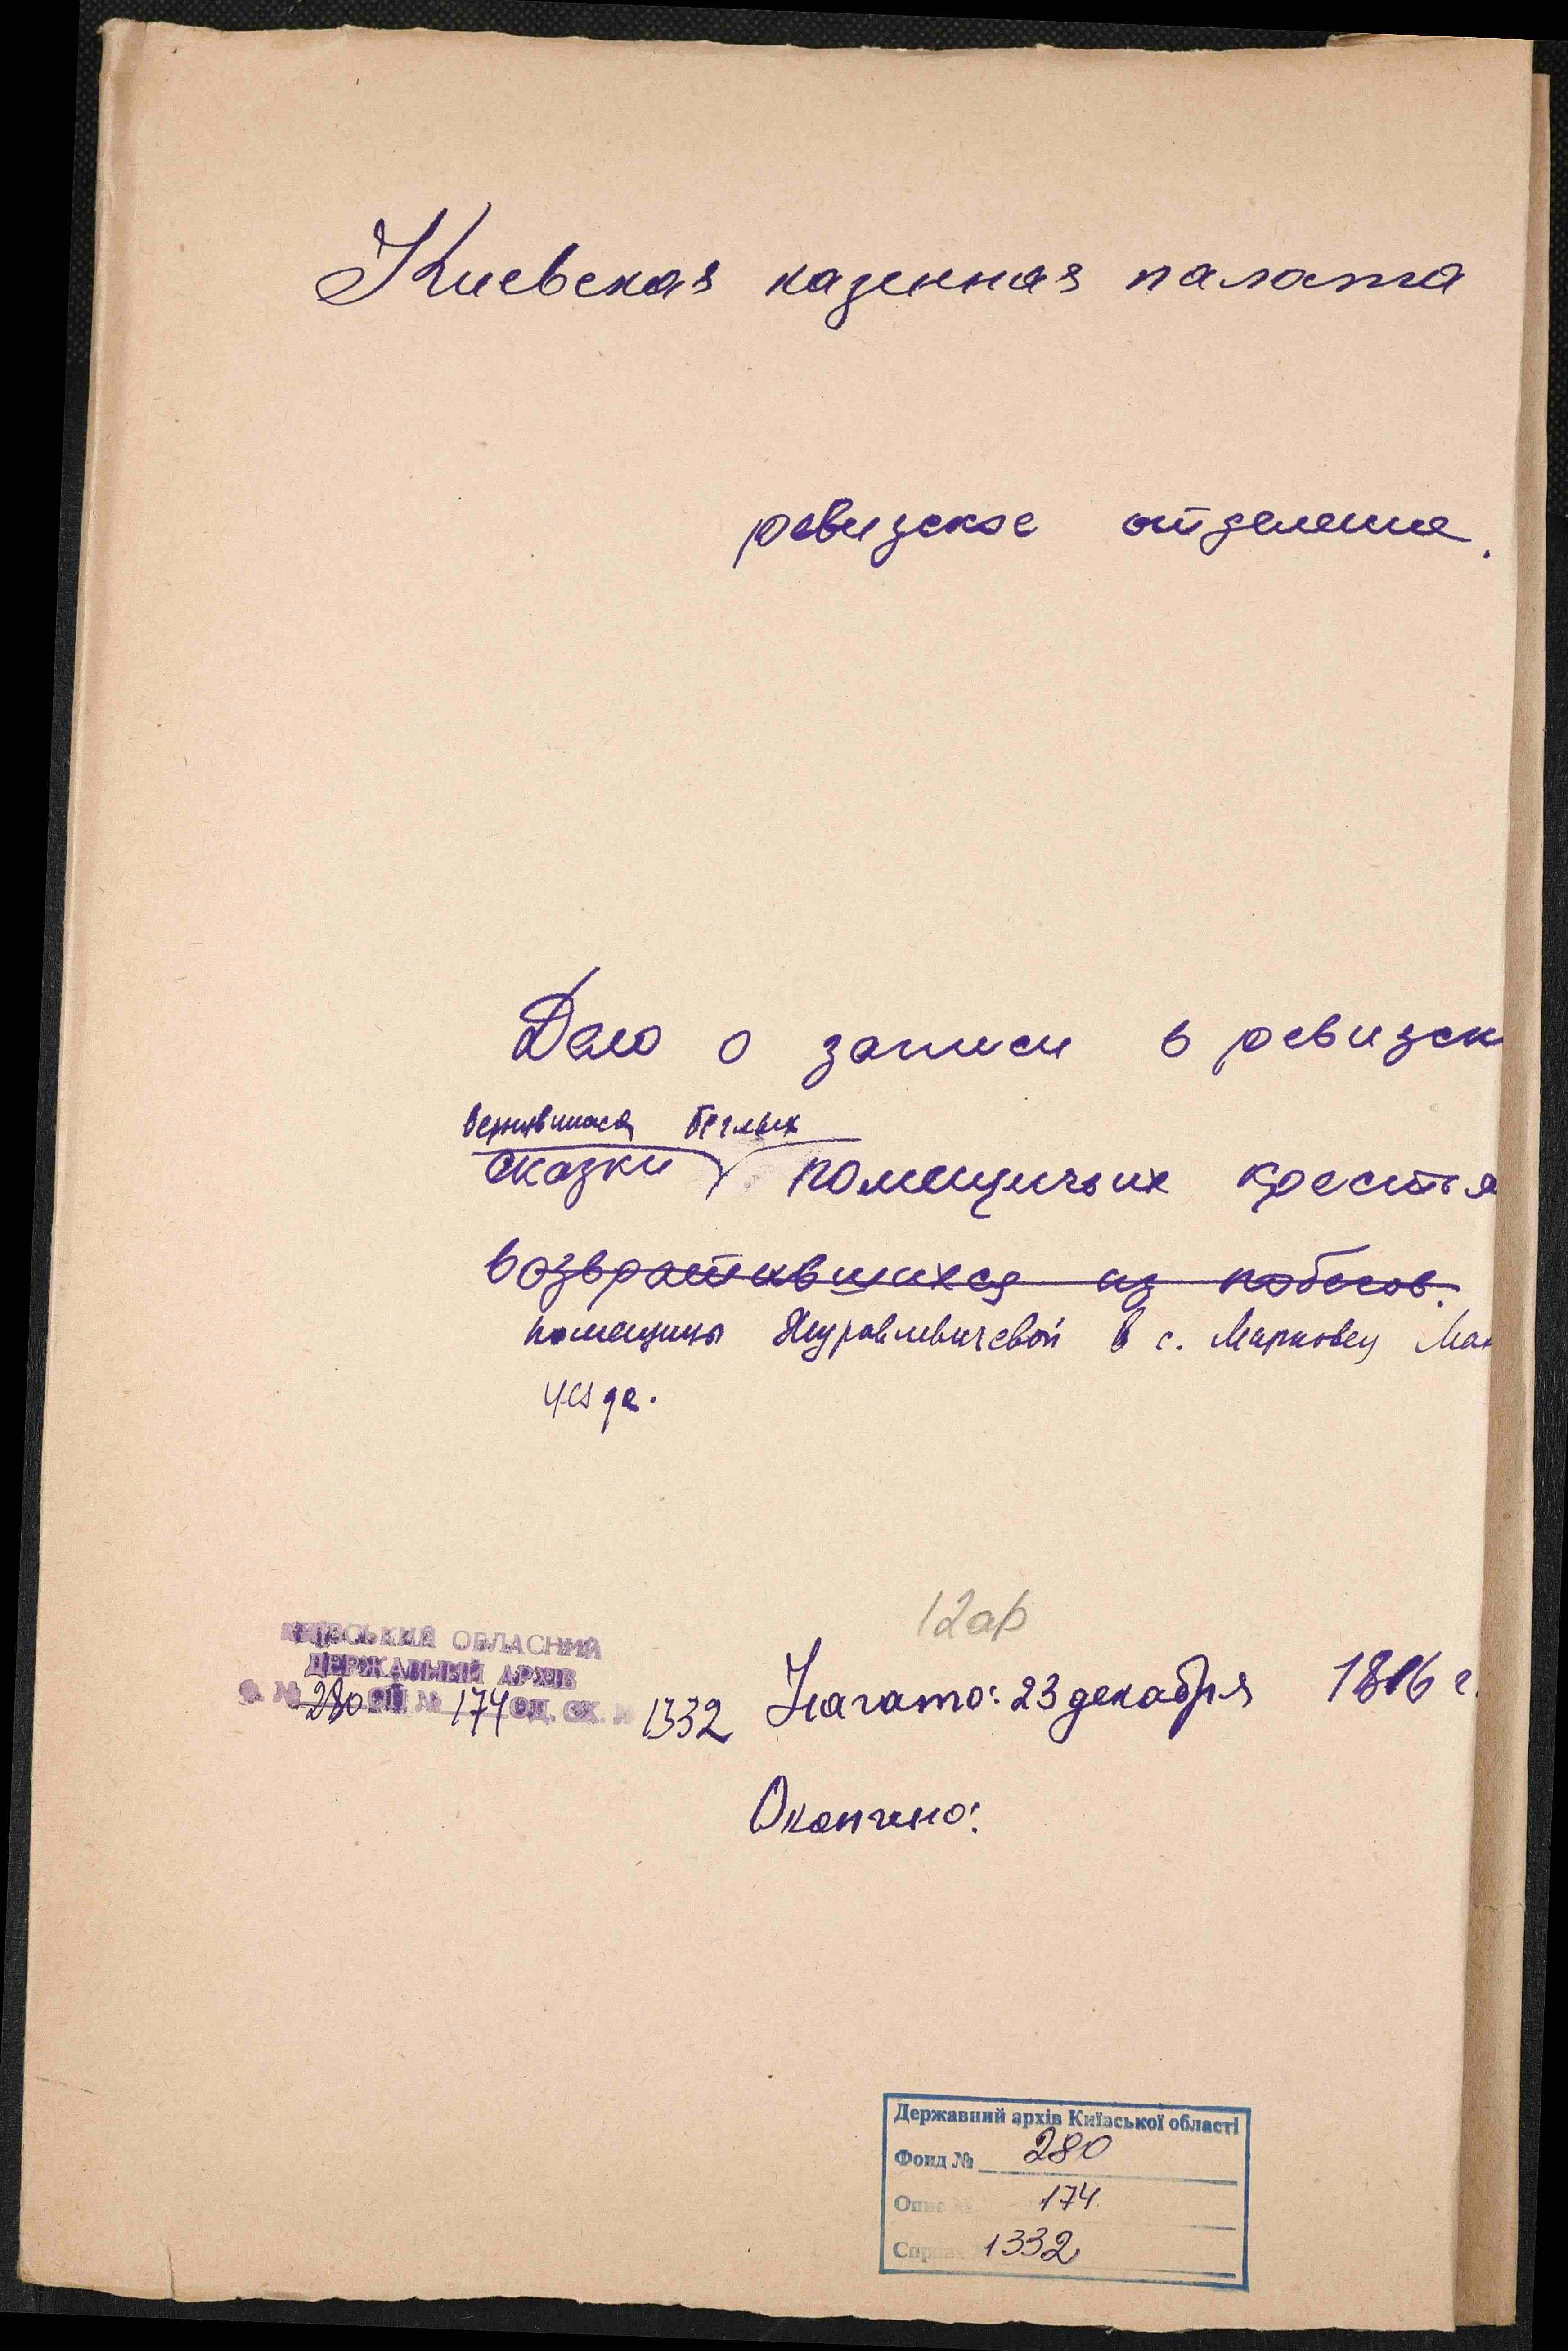 Киевская казенная палата
ревизское отделение.
Дело о записи в ревизск
вернувшихся беглых
сказки помещичьих крестья
возвратившихся из побегов.
помещицы Журавлевичевой в с. Марковец
уезде.
12 ар
КИЇВСЬКИЙ ОБЛАСНИЙ
ДЕРЖАВНИЙ АРХІВ
Ф. № 280 ОП. № 174 ОД. ЗХ. № 1332
Начато: 23 декабря 1816 г.
Окончено:
Державний архів Київської області
Фонд № 280
Опис № 174
Справа 1332